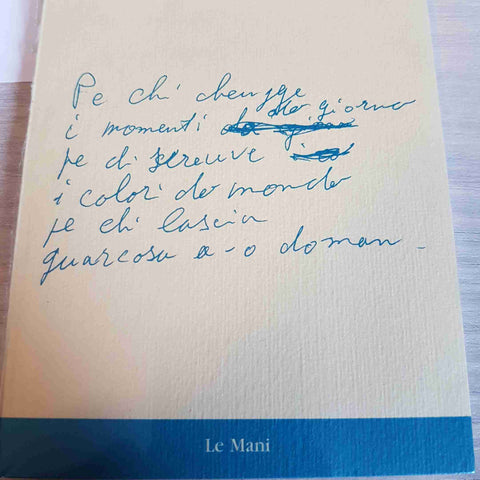 Pe chi cheugge
i momenti do giorno
pe chi screuve
i colori do mondo
pe chi lascia
quarcosa a-o doman -
Le Mani